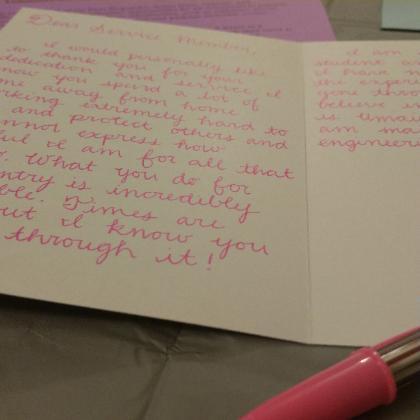 Dear Service Member,
I would personally like
to thank you for your
dedication and service I
know you spend a lot of
time away from home
working extremely hard to
and protect others and
cannot express how
ful I am for all that
What you do for
ntry is incredibly
ble. Times are
but I know you
through it!
I am
student a
I have
the exper
gone thro
believe
is Umai
am ma
engineeri